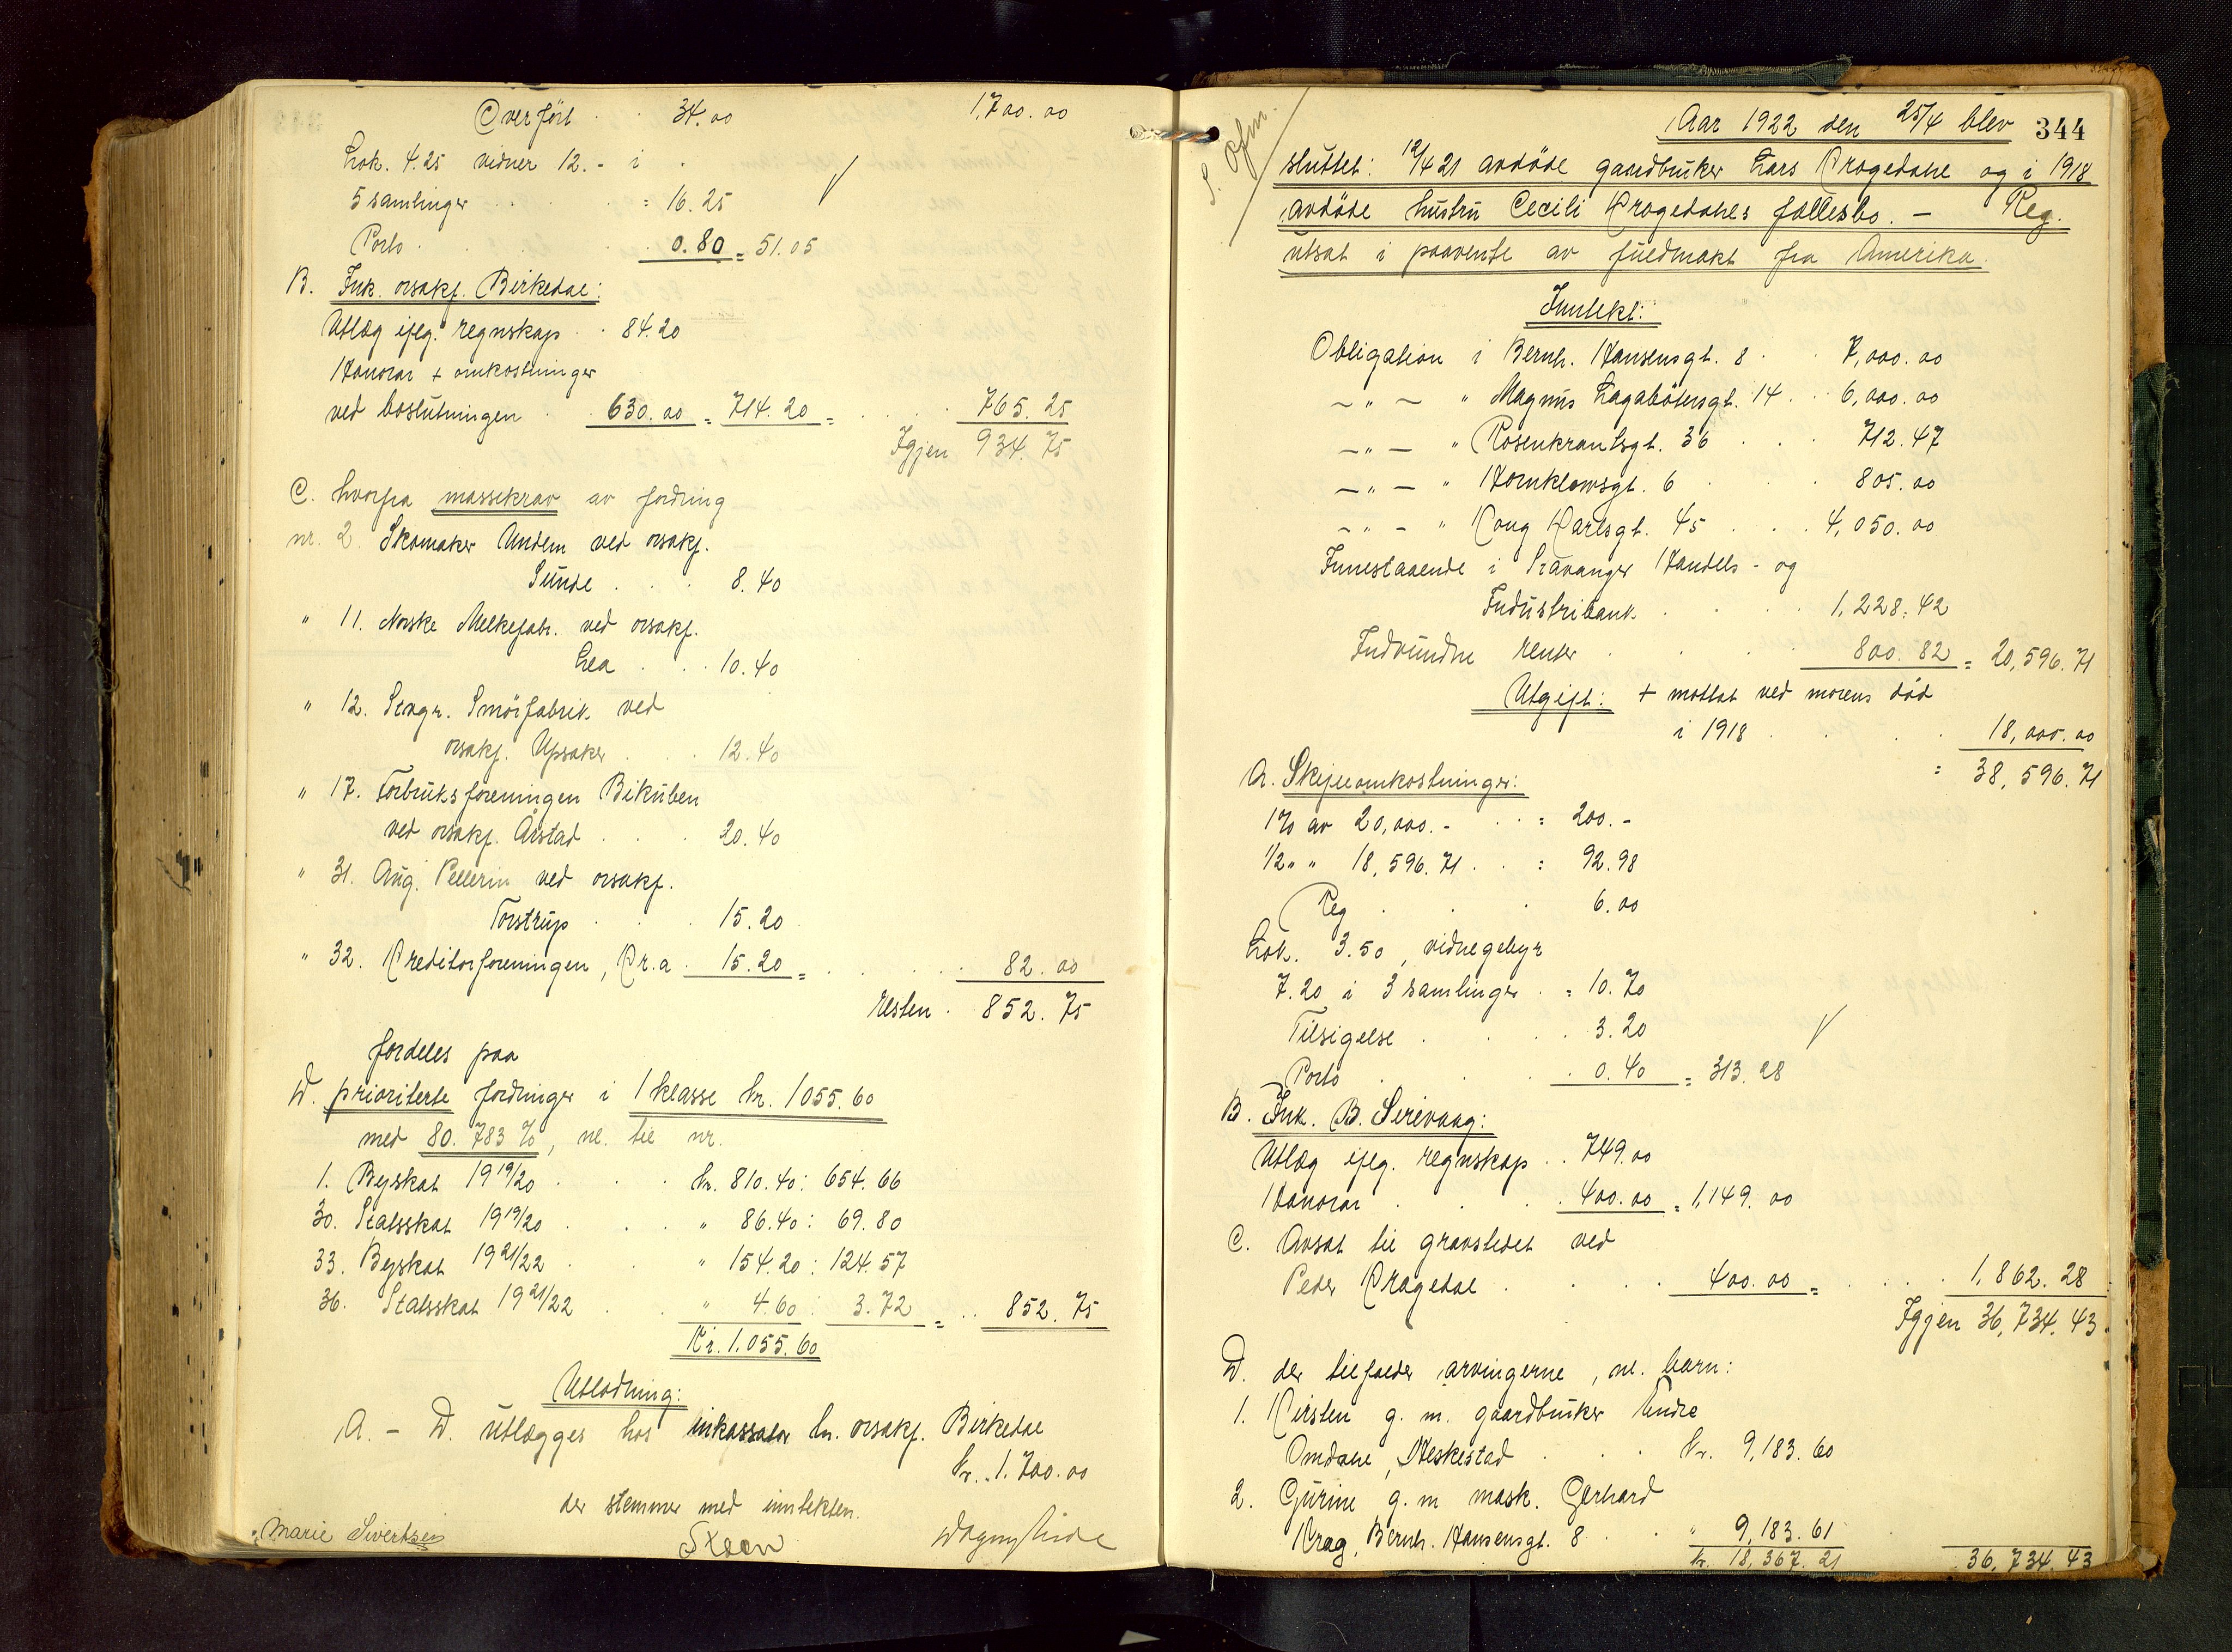 Overført . . 34.00 1,700.00
Lok. 4.25 vidner 12.- i .
5 samlinger . . . = 16.25 √
Porto . . . 0.80 = 51.05
B. Ink. orsakf. Birkedal:
Utlæg iflg. regnskap . . 84.20
Honorar + omkostninger
ved boslutningen . . 630.00 = 714.20 = . . . 765.25
Igjen 934.75
C. hvorfra massekrav av fordring
nr. 2. Skomaker Undem ved orsakf.
Sunde . . . 8.40
" 11. Norske Melkefabr. ved orsakf.
Lea . . . 10.40
" 12. Stvgr. Smörfabrik ved
orsakf. Upsaker . . . 12.40
" 17. Forbruksforeningen Bikuben
ved orsakf. Årstad . . . 20.40
" 31. Aug. Pellerin ved orsakf.
Torstrup . . . 15.20
" 32. Kreditorforeningen, Kr.a . 15.20 = . . . 82.00
resten . 852.75
fordeles paa
D. prioriterte fordringer i 1 klasse kr. 1055.60
med 80.783 %, nl. til nr.
1. Byskat 19 19/20 . . . kr. 810.40 : 654.66
30. Statsskat 19 19/20 . . . " 86.40 : 69.80
33. Byskat 19 21/22 . . . " 154.20 : 124.57
36. Statsskat 19 21/22 . . . " 4.60 : 3.72 = . . 852.75
Kr. 1.055.60
Utlodning:
A. - D. utlægges hos inkassator hr. orsakf. Birkedal
kr. 1.700.00
der stemmer med inntekten.
Marie Sivertsen Steen Dagny Linde
S. Ofm.
Aar 1922 den 25/4 blev 344
sluttet: 12/4 21 avdöde gaardbruker Lars Kragedahl og i 1918
avdöde hustru Cecili Kragedahls fællesbo. - Reg.
utsat i paavente av fuldmakt fra Amerika.
Inntekt:
Obligation i Bernh. Hansensgt. 8 . . 7,000.00
- " - " Magnus Lagabötersgt. 14 . . 6,000.00
- " - " Rosenkrantsgt. 36 . . . 712.47
- " - " Hornklowsgt. 6 . . . 805.00
- " - " Kong Karlsgt. 45 . . . 4,050.00
Innestaaende i Stavanger Handels- og
Industribank . . . 1,228.42
Indvundne renter . . . 800.82 = 20,596.71
Utgift: + mottat ved morens död
i 1918 . . . 18,000.00
= 38,596.71
A. Skifteomkostninger:
1% av 20,000.- . . = 200.-
1/2 " " 18,596.71 . . = 92.98
Reg . . . 6.00
Lok. 3.50, vidnegebyr
7.20 i 3 samlinger . = 10.70
Tilsigelse . . . 3.20 √
Porto . . . 0.40 = 313.28
B. Ink. B. Sirevaag:
Utlæg iflg. regnskap . . 749.00
Honorar . . . 400.00 = 1,149.00
C. Avsat til gravstedet ved
Peder Kragedal . . . 400.00 = . . . 1,862.28
Igjen 36,734.43
D. der tilfalder arvingerne, nl. barn:
1. Kirsten g. m. gaardbruker Endre
Omdahl, Heskestad . . . kr. 9,183.60
2. Gurine g. m mask. Gerhard
Krag, Bernh. Hansensgt. 8 . . " 9,183.61
kr. 18,367.21 36,734.43